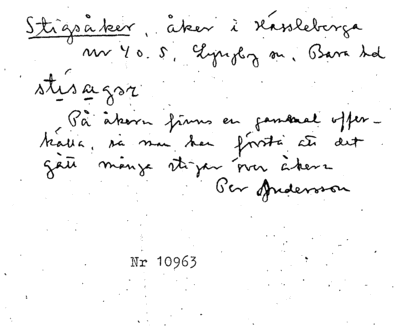 Stigsåker, åker i Hässleberga
nr 4 o. 5, Lyngby sn, Bara hd
stisagər
På åkern finns en gammal offer-
källa, så man kan förstå att det
gått många stigar över åkern
Per Andersson
Nr 10963